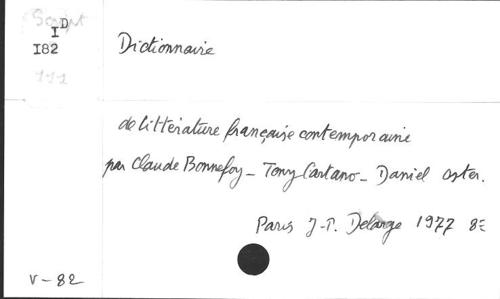 Script
I D
I82
111
Dictionnaire
de littérature française contemporaine
par Claude Bonnefoy - Tony Cartano - Daniel Oster.
Paris J-P. Delarge 1977 8E
V - 82